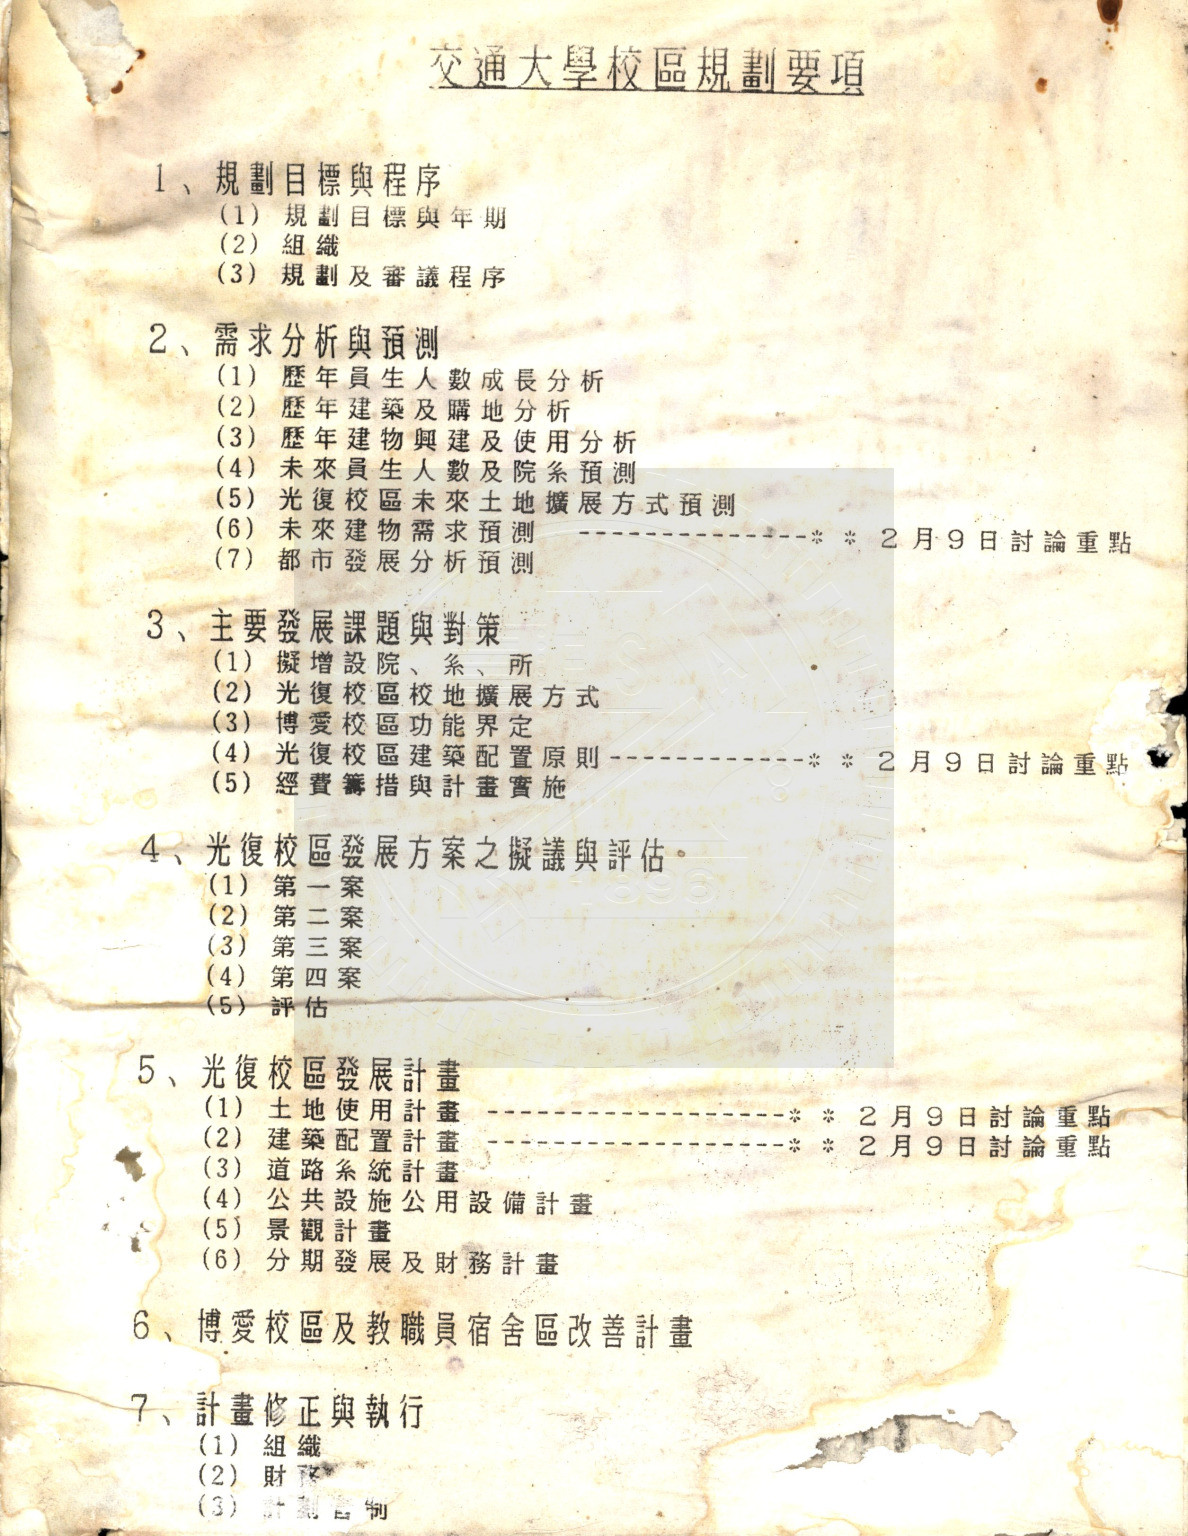 交通大學校區規劃要項
1、規劃目標與程序
(1) 規劃目標與年期
(2) 組織
(3) 規劃及審議程序
2、需求分析與預測
(1) 歷年員生人數成長分析
(2) 歷年建築及購地分析
(3) 歷年建物興建及使用分析
(4) 未來員生人數及院系預測
(5) 光復校區未來土地擴展方式預測
(6) 未來建物需求預測 --------------** 2月9日討論重點
(7) 都市發展分析預測
3、主要發展課題與對策
(1) 擬增設院、系、所
(2) 光復校區校地擴展方式
(3) 博愛校區功能界定
(4) 光復校區建築配置原則------------** 2月9日討論重點
(5) 經費籌措與計畫實施
4、光復校區發展方案之擬議與評估
(1) 第一案
(2) 第二案
(3) 第三案
(4) 第四案
(5) 評估
5、光復校區發展計畫
(1) 土地使用計畫 ------------------** 2月9日討論重點
(2) 建築配置計畫 ------------------** 2月9日討論重點
(3) 道路系統計畫
(4) 公共設施公用設備計畫
(5) 景觀計畫
(6) 分期發展及財務計畫
6、博愛校區及教職員宿舍區改善計畫
7、計畫修正與執行
(1) 組織
(2) 財務
(3) 計劃管制
1896